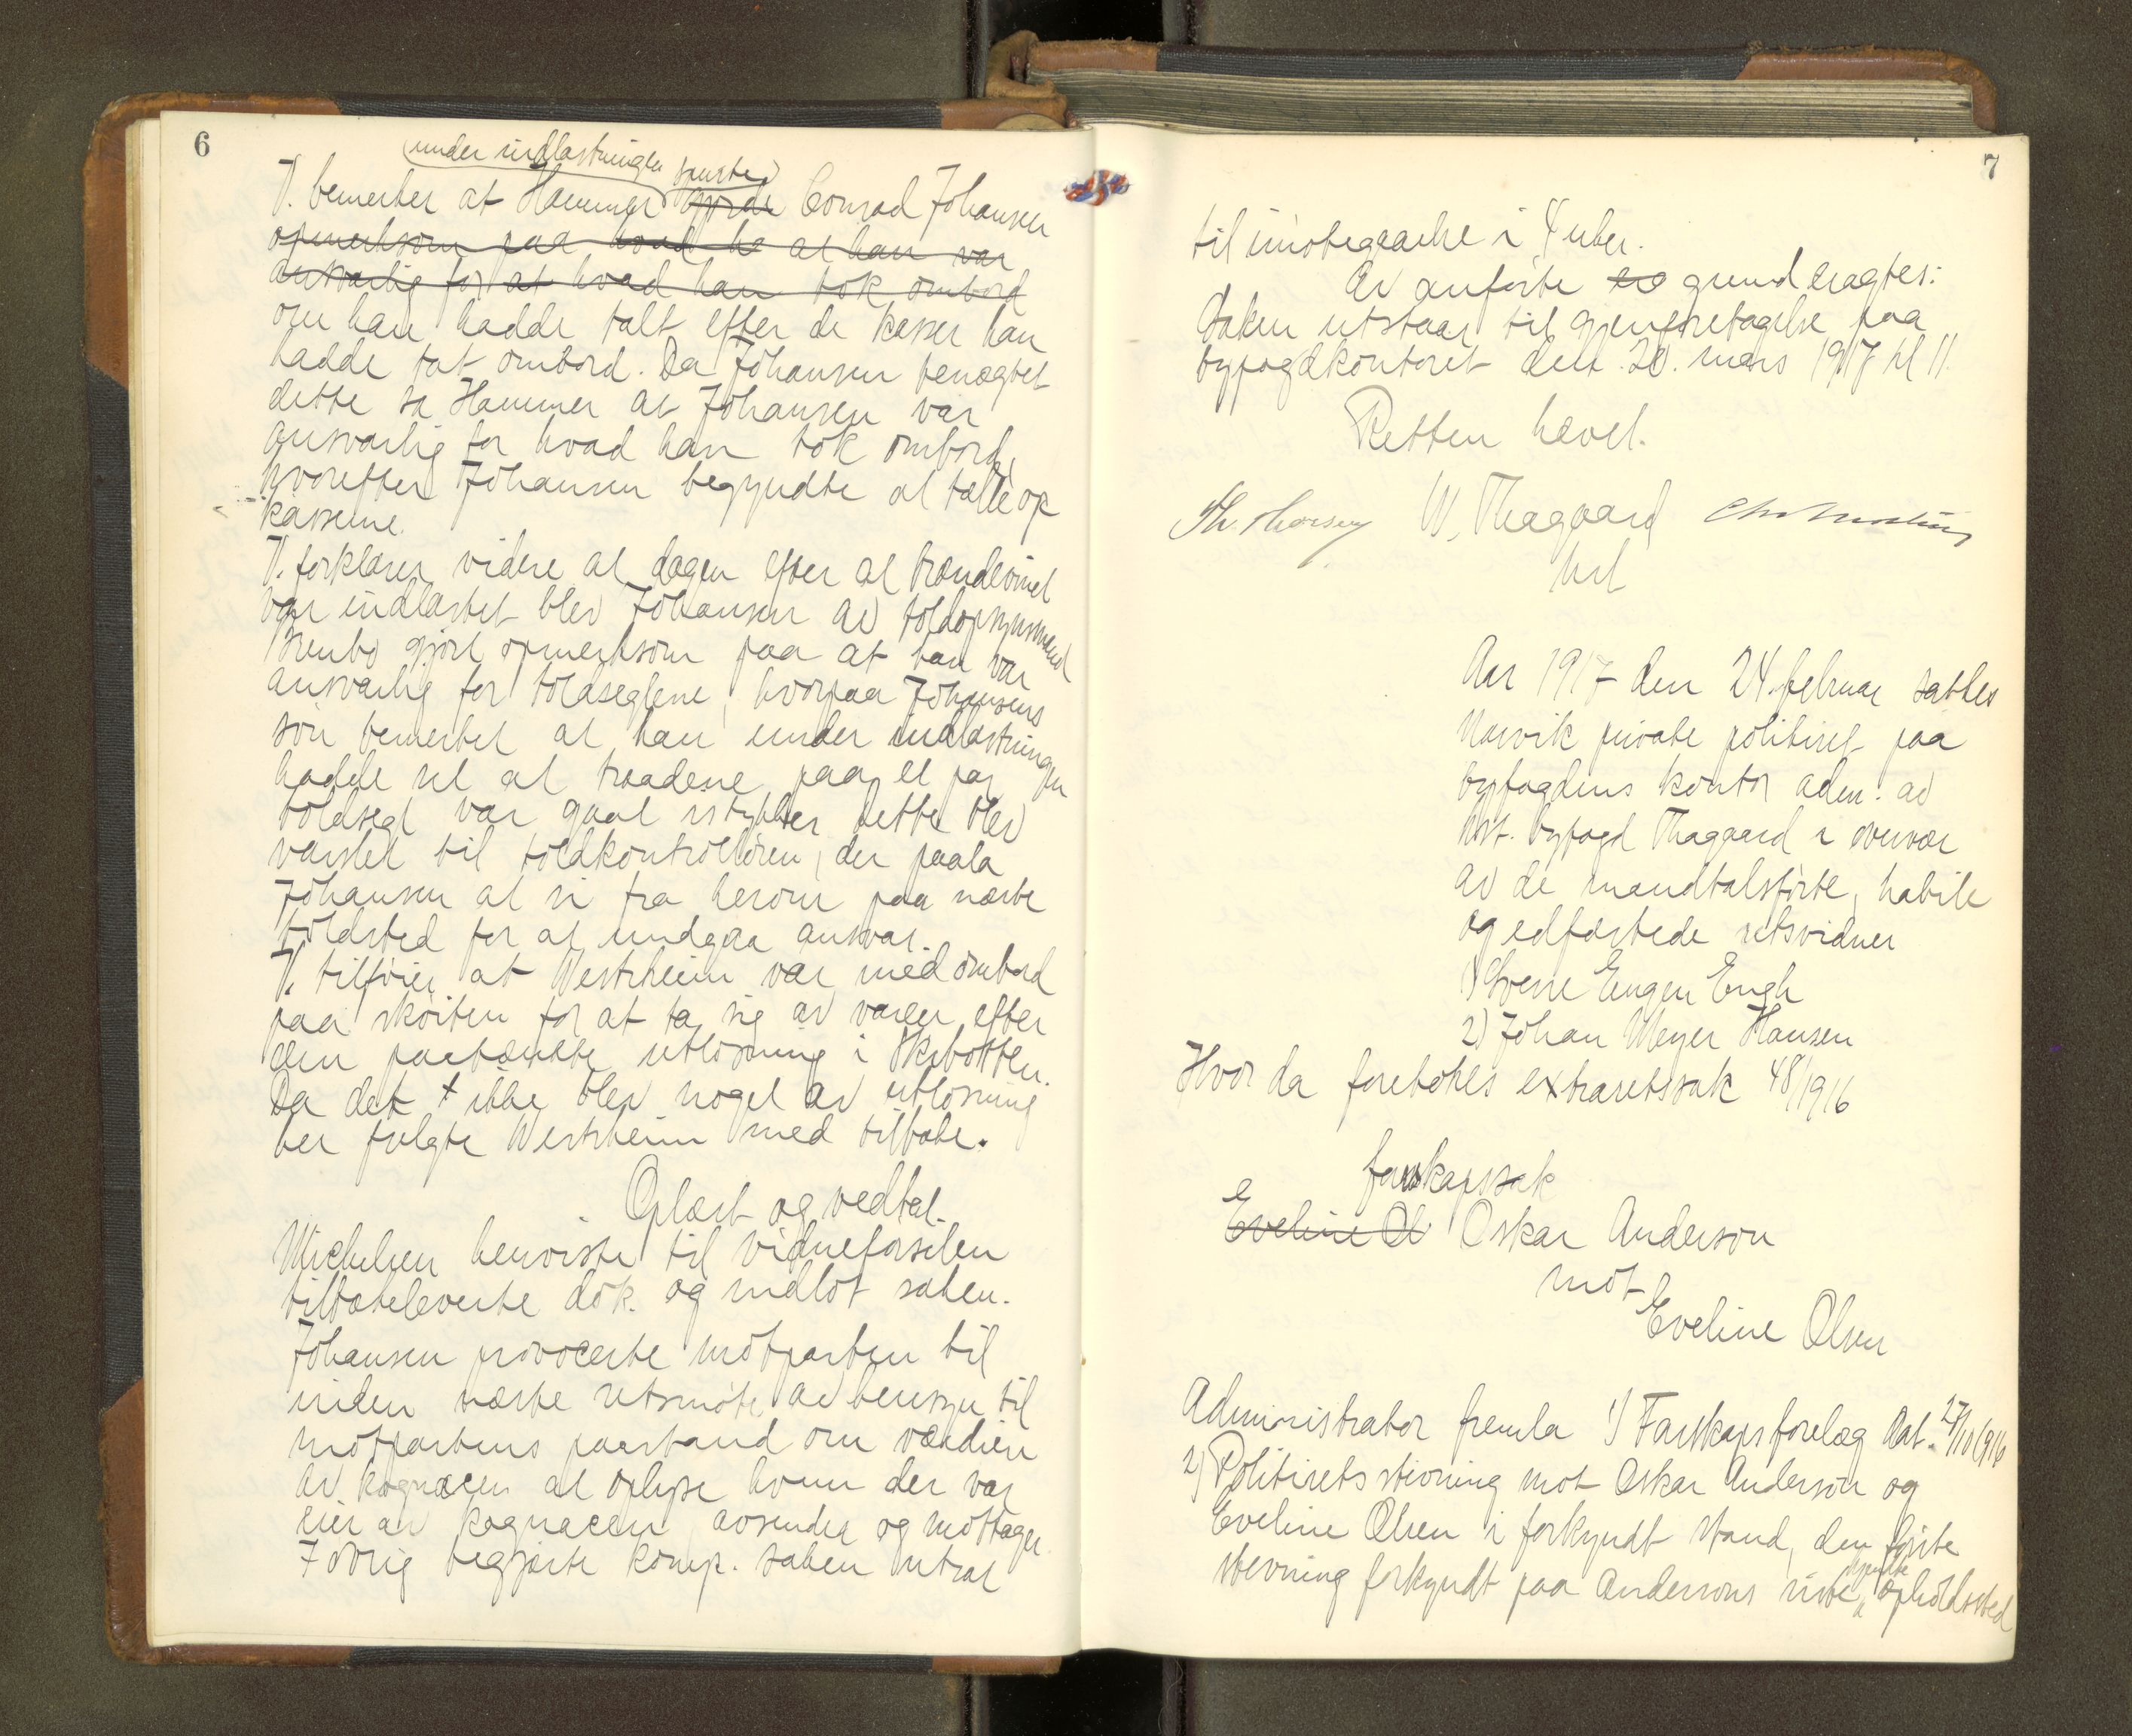 6
under indlastningen spurte
V. bemerker at Hammer gjorde Conrad Johansen
opmerksom paa hvad ha at han var
ansvarlig for at hvad han tok ombord
om han hadde talt efter de kasser han
hadde tat ombord. Da Johansen benægtet
dette sa Hammer at Johansen var
ansvarlig for hvad han tok ombord,
hvorefter Johansen begyndte at tælle op
kasserne.
V. forklarer videre at dagen efter at brændevinet
var indlastet blev Johansen av toldopsynsmand
gjort opmerksom paa at han var
ansvarlig for toldseglene, hvorpaa Johansens
søn bemerket at han under indlastningen
hadde set at traadene paa et par
toldsegl var gaat istykker dette blev
varslet til toldkontrolløren, der paala
Johansen at si fra herom paa næste
toldsted for at undgaa ansvar.
V. tilføier at Westrheim var med ombord
paa skøiten for at ta sig av varen efter
den paatænkte utlosning i Skibotten.
Da det ikke blev noget av utlosning
her fulgte Westrheim med tilbake.
Oplæst og vedtat.
Michelsen henviste til vidneførselen
tilbakeleverte dok. og indlot saken.
Johansen provocerte motparten til
inden næste retsmøte av hensyn til
motpartens paastand om værdien
av kognacen at oplyse hvem der var
eier av kognacen, avsender og mottager.
I øvrig begjærte komp. saken utsat
7
til imøtegaaelse i 4 uker.
Av anførte grund eragtes:
Saken utstaar til gjenforetagelse paa
byfogdkontoret den 20. mars 1917 kl 11.
Retten hævet.
W. Thagaard
kst
Aar 1917 den 24. februar sattes
Narvik private politiret paa
byfogdens kontor adm. av
kst. byfogd Thagaard i overvær
av de mandtalsførte, habile
og edfæstede retsvidner
1) Sverre Eugen Engh
2) Johan Meyer Hansen
Hvor da foretokes extraretssak 48/1916
farskapssak
Eveline Ol Oskar Anderson
mot
Eveline Olsen
Administrator fremla 1) Farskapsforelæg dat. 27/10 1916
2) Politirets stevning mot Oskar Anderson og
Eveline Olsen i forkyndt stand, den første
stevning forkyndt paa Andersons siste kjendte opholdssted